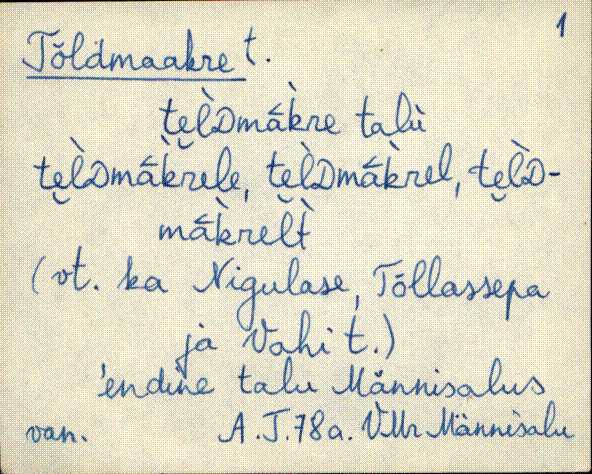 1
Tõldmaakre t.
te̮l̀Dmák̀re talù
te̮l̀Dmák̀rele, te̮l̀Dmák̀rel, te̮l̀D-
mák̀relt̀
(vt. ka Nigulase, Tõllassepa
ja Vahi t.)
'endine talu Männisalus
van. A.J. 78a. VMr Männisalu